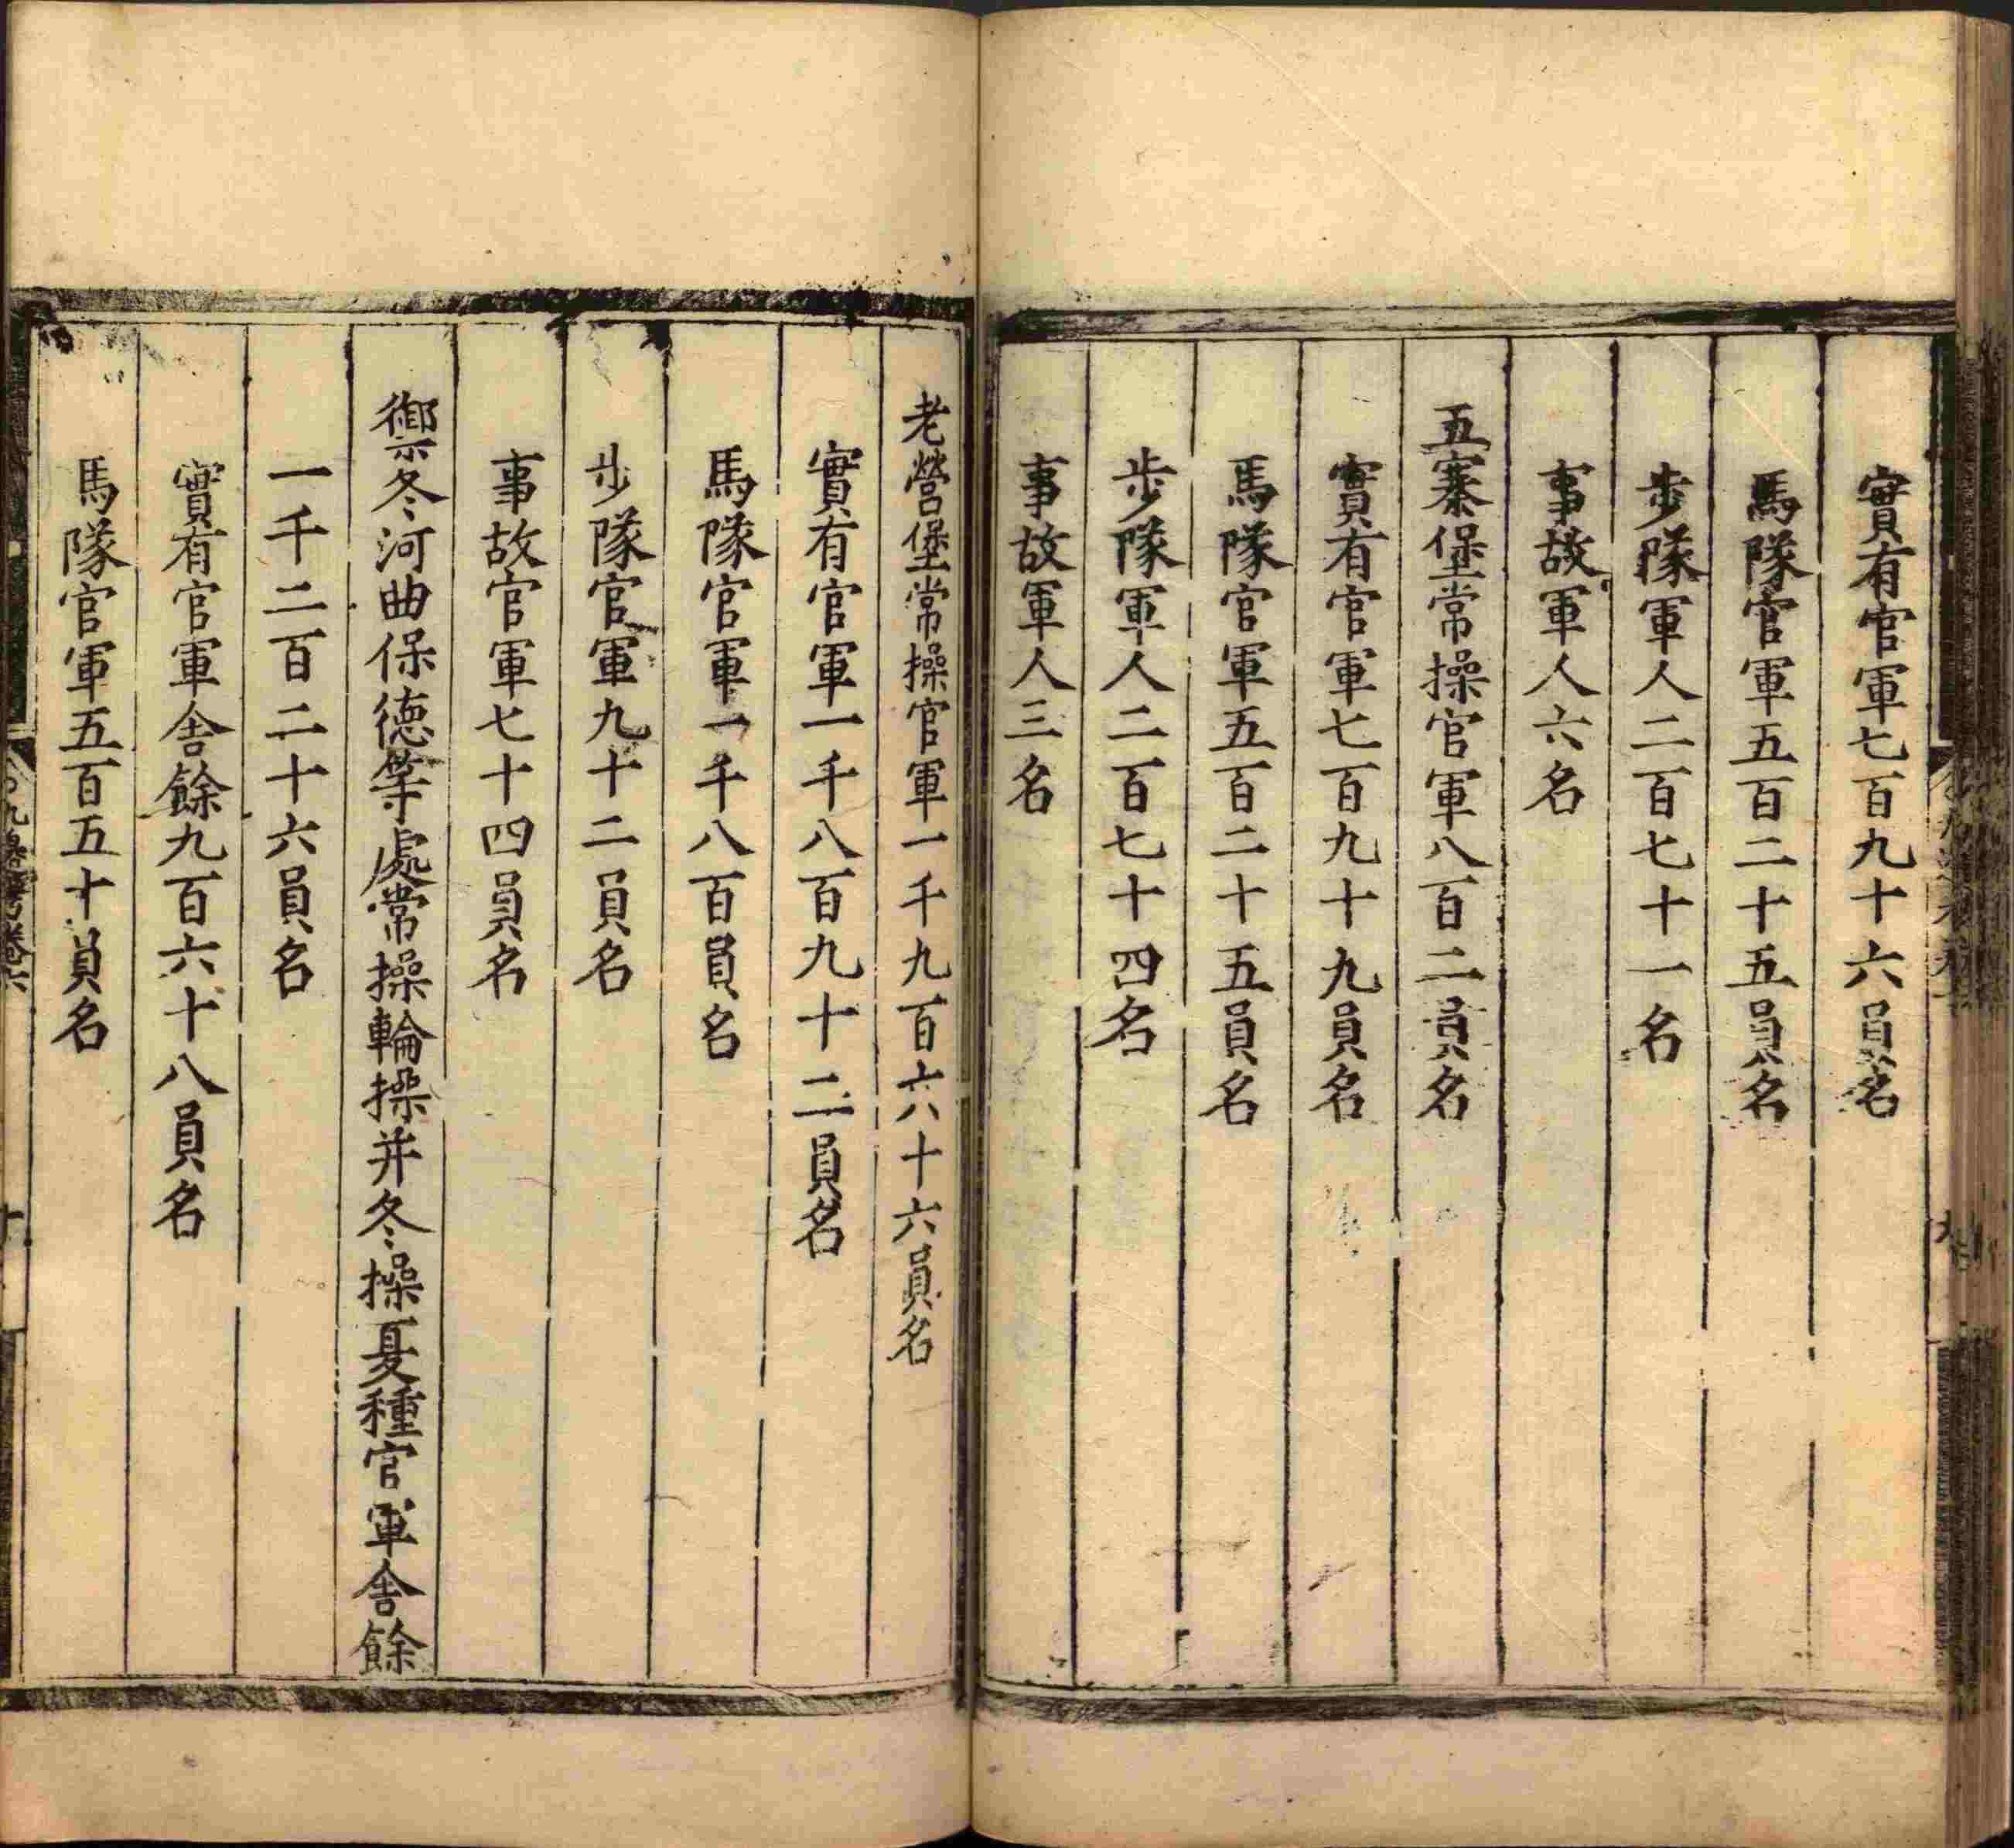 實有官軍七百九十六員名
馬隊官軍五百二十五員名
步隊軍人二百七十一名
事故軍人六名
五寨堡常操官軍八百二員名
實有官軍七百九十九員名
馬隊官軍五百二十五員名
步隊軍人二百七十四名
事故軍人三名
老營堡常操官軍一千九百六十六員名
實有官軍一千八百九十二員名
馬隊官軍一千八百員名
步隊官軍九十二員名
事故官軍七十四員名
禦冬河曲保德等處常操輪操并冬操夏種官軍舍餘
一千二百二十六員名
實有官軍舍餘九百六十八員名
馬隊官軍五百五十員名